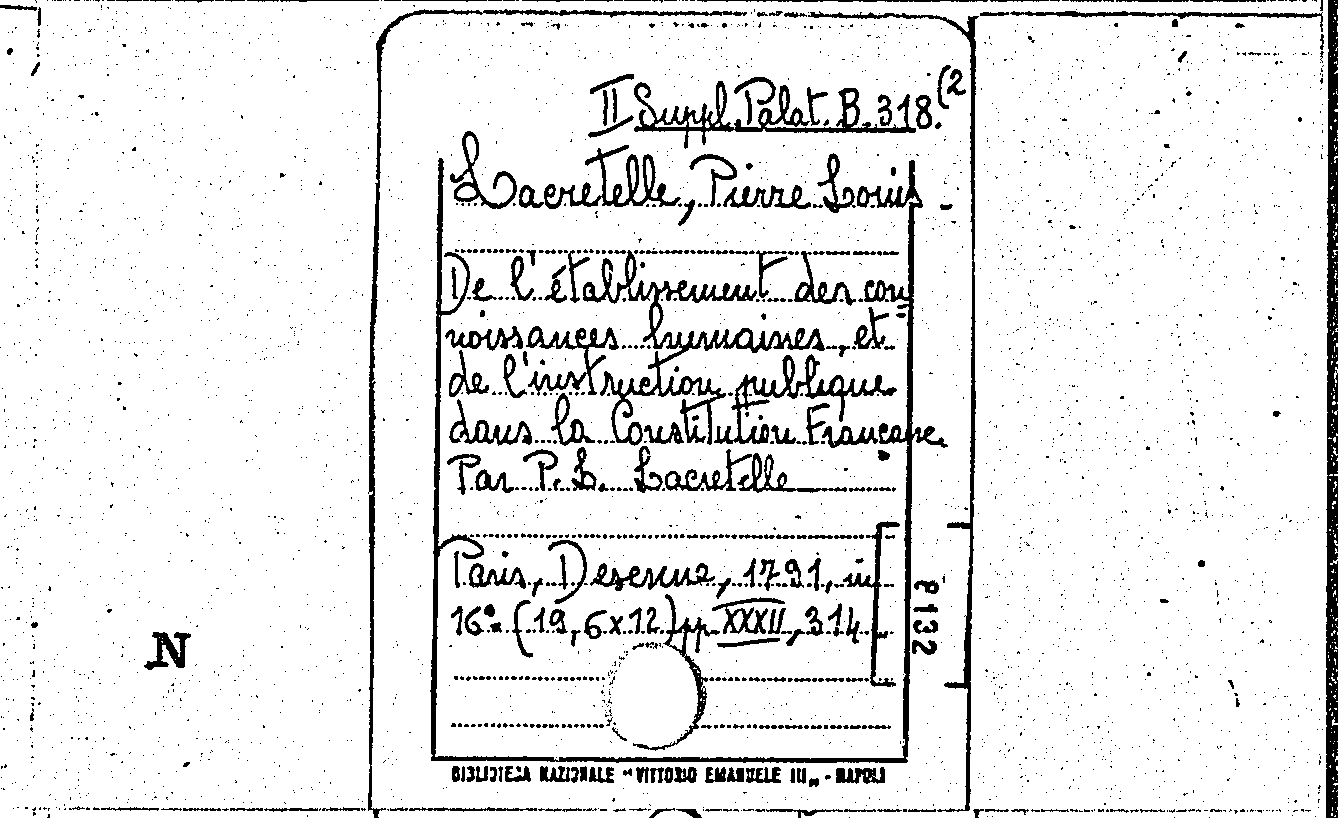 II Suppl. Palat. B. 318.(2
Lacretelle, Pierre Louis -
De l'établissement des con=
noissances humaines, et
de l'instruction publique
dans la Constitution Française.
Par P. L. Lacretelle
Paris, Desenne, 1791, in
16º. (19,6x12) pp. XXXII, 314
P 132
N
BIBLIOTECA NAZIONALE "VITTORIO EMANUELE III„ - NAPOLI